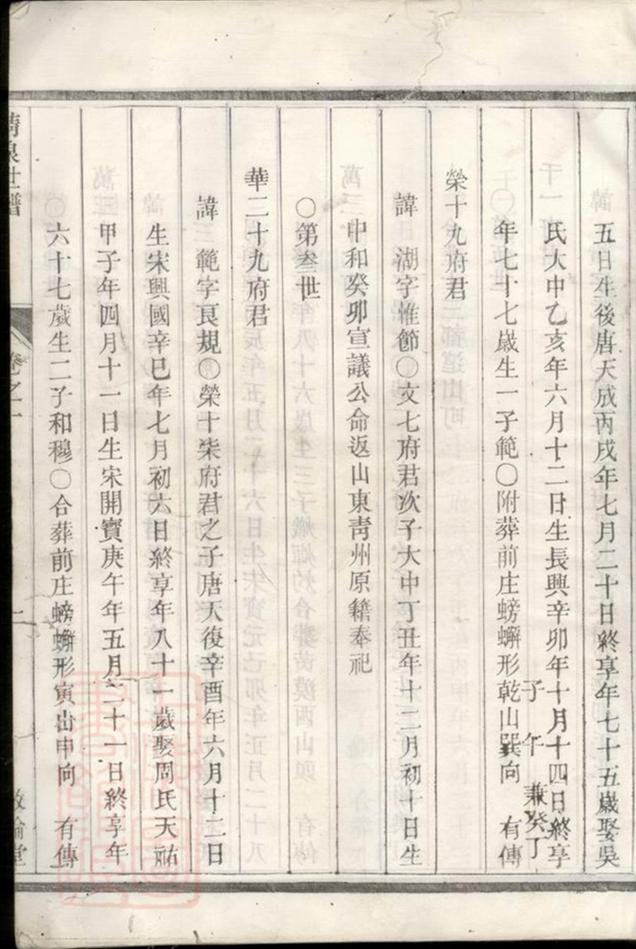 五日生後唐天成丙戌年七月二十日終享年七十五歲娶吳
氏大中乙亥年六月十二日生長興辛卯年十月十四日終享
年七十七歲生一子範〇附葬前庄螃蠏形乾山巽向 有傳
子午兼癸丁
榮十九府君
諱 湖字惟節〇文七府君次子大中丁丑年十二月初十日生
中和癸卯宣議公命返山東靑州原籍奉祀
〇第叁世
華二十九府君
諱 範字良規〇榮十柒府君之子唐天復辛酉年六月十二日
生宋興國辛巳年七月初六日終享年八十一歲娶周氏天祐
甲子年四月十一日生宋開寶庚午年五月二十一日終享年
六十七歲生二子和穆〇合葬前庄螃蠏形寅山申向 有傳
世譜
卷之一
二
敦倫堂